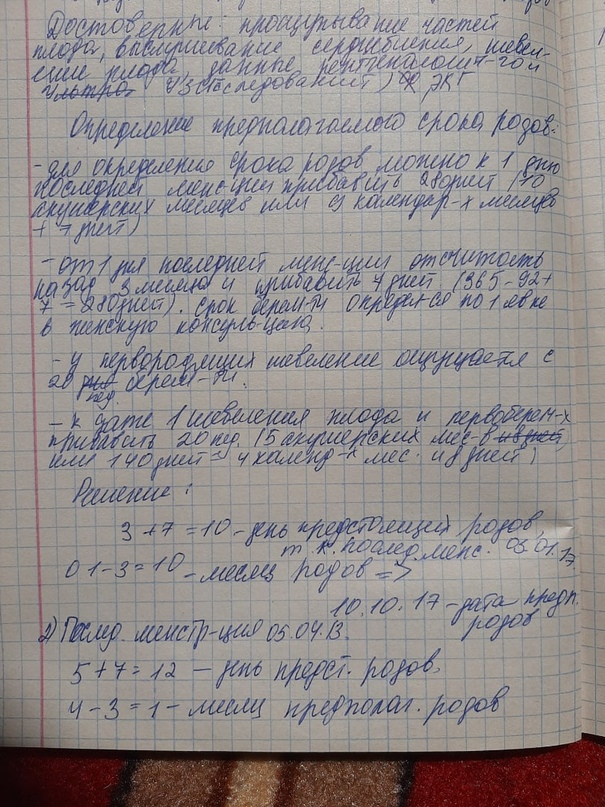 Достоверные: прощупывание частей
плода, выслушивание сердцебиения, шевел-
ение плода, данные
УЗ исследования) ЭКГ
Определение предполагаемого срока родов:
- для определение срока родов можно к 1 дню
последней менс-ции прибавить 280дней (10
акушерских месяцев или 9 календар-х месяцев
+ 7 дней)
- от 1 дня последней менс-ции отсчитать
назад 3 месяца и прибавить 7 дней (365-92+
7 = 280дней). Срок берем-ти определ-ся по 1 явке
в женскую консуль-цию.
- у первородящих шевеление ощущается с
20 нед. берем-ти.
- к дате 1 шевеления плода и первоберем-х
прибавить 20 нед. (5 акушерских мес-в
или 140 дней = 4 календ-х мес. и 8 дней)
Решение:
3+7=10 - день предстоящих родов,
т.к. послед. менс. 03.01.17.
01-3=10 - месяц родов =>
10.10.17 - дата предп.
родов
2) Послед. менстр-ция 05.04.13.
5+7=12 - день предст. родов.
4-3=1 - месяц предполаг. родов